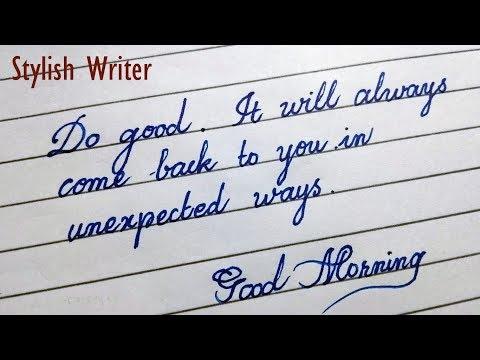 Stylish Writer
Do good. It will always
come back to you in
unexpected ways.
Good Morning